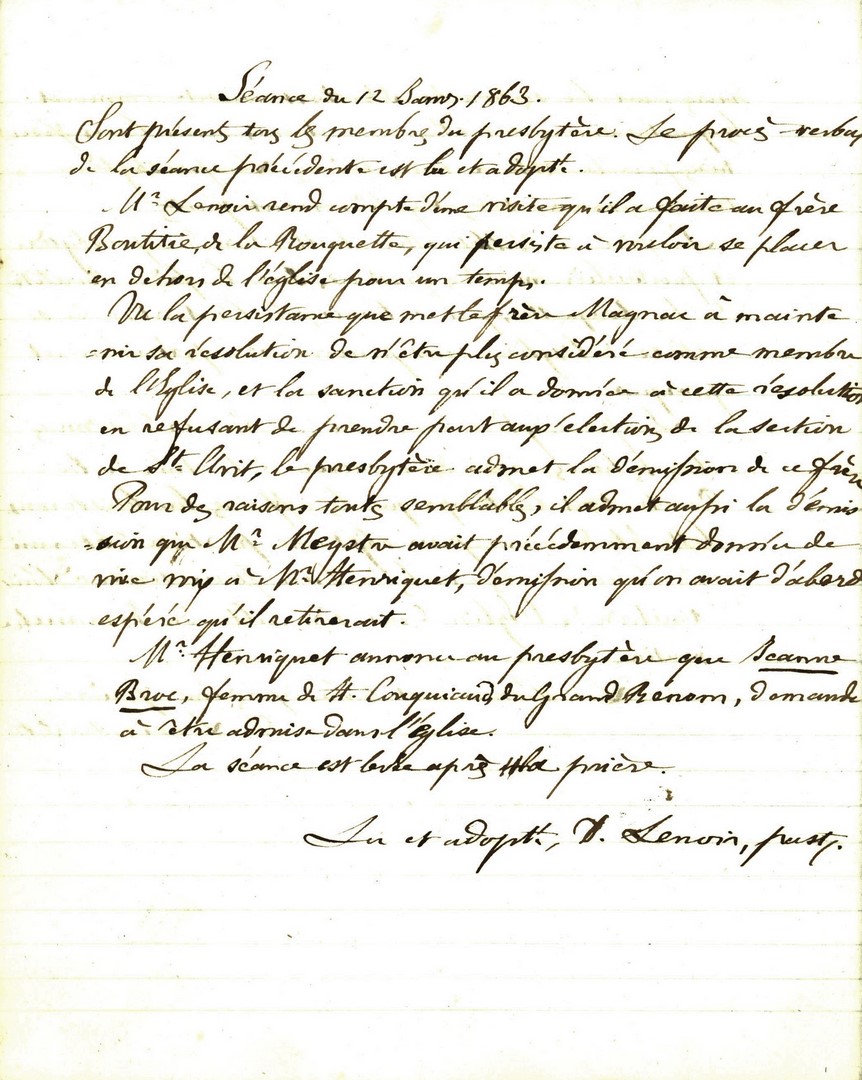 Séance du 12 Janv. 1863.
Sont présents tous les membres du presbytère. Le procès-verbal
de la séance précédente est lu et adopté.
Mr Lenoir rend compte d'une visite qu'il a faite au frère
Boutitie, de la Rouquette, qui persiste à vouloir se placer
en dehors de l'église pour un temps.
Vu la persistance que met le frère Magnac à mainte
=nir sa résolution de n'être plus considéré comme membre
de l'Eglise, et la sanction qu'il a donnée à cette résolution
en refusant de prendre part aux élections de la section
de Ste, le presbytère admet la démission de ce frère
Pour des raisons toutes semblables, il admet aussi la démis
=sion que Mr Meystre avait précédemment donnée de
vive voix à Mr Henriquet, démission qu'on avait d'abord
espéré qu'il retirerait.
Mr Henriquet annonce au presbytère que Jeanne
Broc, femme de H. du Grand Renom, demande
à être admise dans l'église.
La séance est levée après la prière.
Lu et adopté, D. Lenoir, past.